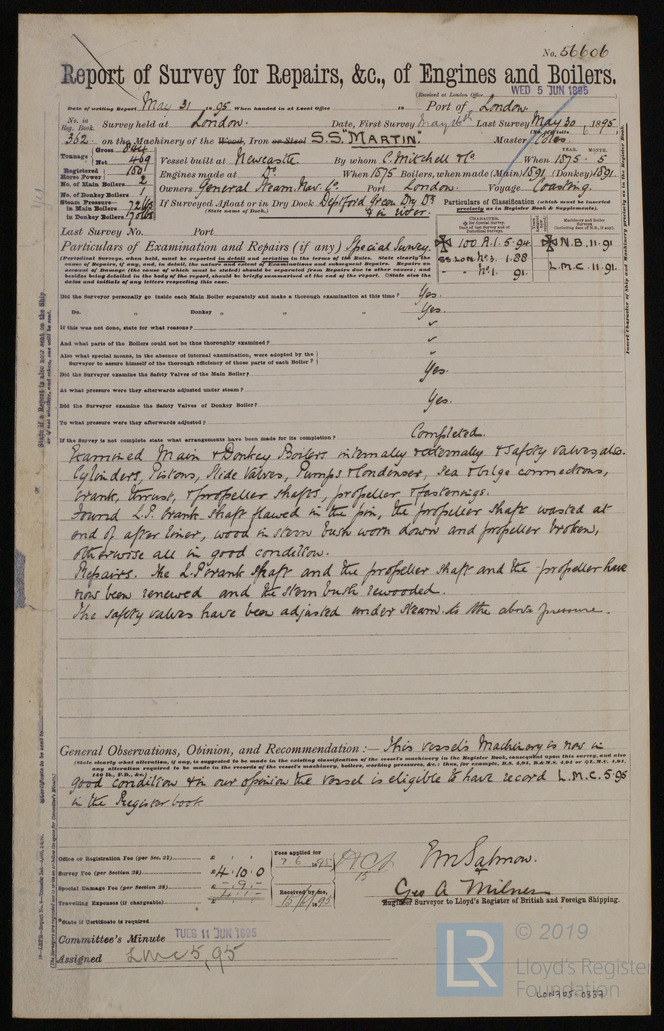 No. 56606
Report of Survey for Repairs, &c., of Engines and Boilers.
(Received at London Office WED 5 JUN 1895
Date of writing Report May 31 1895 When handed in at Local Office 18 Port of London
No. in Reg. Book. Survey held at London. Date, First Survey May Last Survey May 30 1895
362 on the Machinery of the Wood, Iron or Steel S.S. "MARTIN." Master
Tonnage Gross 844 Net 469 Vessel built at Newcastle By whom C. Mitchell & Co When 1875 . 5
YEAR. MONTH.
Registered Horse Power 150 Engines made at Do. When 1875 Boilers, when made (Main) 1891 (Donkey) 1891
No. of Main Boilers 2
No. of Donkey Boilers 1 Owners General Steam Nav. Co. Port London. Voyage Coasting.
Steam Pressure in Main Boilers 72 lbs
in Donkey Boilers 70 lbs If Surveyed Afloat or in Dry Dock Deptford Green Dry Dk & in river.
(State name of Dock.)
Particulars of Classification (which must be inserted precisely as in Register Book & Supplements).
Last Survey No. Port
Particulars of Examination and Repairs (if any) Special Survey.
100 A.1. 5.94
SS. Lon. No. 3. 1.88
- No. 1. 91.
N.B. 11.91
L.M.C. 11.91.
Did the Surveyor personally go inside each Main Boiler separately and make a thorough examination at this time? Yes.
Do. " Donkey " " " Yes.
If this was not done, state for what reasons?
And what parts of the Boilers could not be thus thoroughly examined?
Also what special means, in the absence of internal examination, were adopted by the
Surveyor to assure himself of the thorough efficiency of those parts of each Boiler?
Did the Surveyor examine the Safety Valves of the Main Boiler? Yes.
At what pressure were they afterwards adjusted under steam?
Did the Surveyor examine the Safety Valves of Donkey Boiler? Yes.
To what pressure were they afterwards adjusted?
If the Survey is not complete state what arrangements have been made for its completion? Completed.
Examined Main & Donkey Boilers internally & externally & safety valves, also
Cylinders, Pistons, Slide Valves, Pumps & Condenser, Sea & bilge connections,
Crank, thrust, & propeller shafts, propeller & fastenings.
Found L.P. crank shaft flawed in the pin, the propeller shaft wasted at
end of after liner, wood in stern bush worn down and propeller broken,
otherwise all in good condition.
Repairs. The L.P. crank shaft and the propeller shaft and the propeller have
now been renewed and the stern bush rewooded.
The safety valves have been adjusted under steam to the above pressure.
General Observations, Opinion, and Recommendation:— This vessel's Machinery is now in
(State clearly what alteration, if any, is suggested to be made in the existing classification of the vessel's machinery in the Register Book, consequent upon this survey, and also
any alteration required to be made in the records of the vessel's machinery, boilers, working pressures, &c.: thus, for example,
good condition & in our opinion the vessel is eligible to have record L.M.C. 5.95
in the Register book
Office or Registration Fee (per Sec. 27) £
Survey Fee (per Section 28) £ 4.10.0
Special Damage Fee (per Section 28) £
Travelling Expenses (if chargeable) £
Fees applied for 7.6.1895
Received by me, 15/6/1895
Geo A Milner
Engineer Surveyor to Lloyd's Register of British and Foreign Shipping.
*State if Certificate is required
Committee's Minute TUES 11 JUN 1895
Assigned LMC 5,95
LR
© 2019
Lloyd's Register
Foundation
LON705-0337